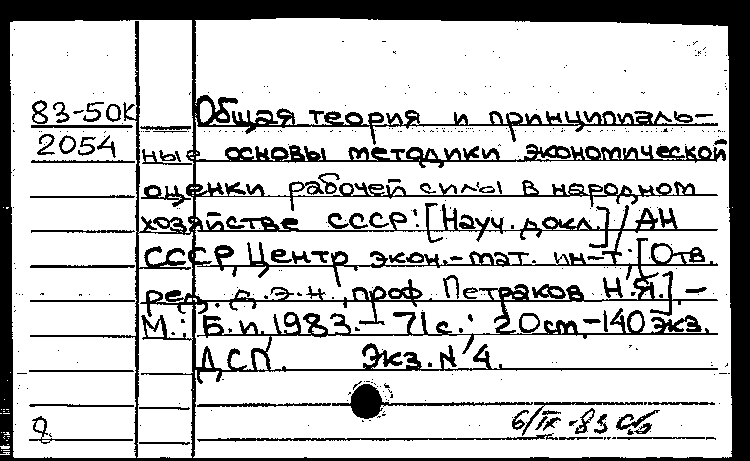 83-50К Общая теория и принципиаль-
2054 ные основы методики экономической
оценки рабочей силы в народном
хозяйстве СССР: [Науч. докл.] / АН
СССР, Центр. экон.-мат. ин-т; [Отв.
ред. д.э.н., проф. Петраков Н.Я.]. -
М.: Б.и., 1983. - 71 с.; 20 cm. - 140 экз.
ДСП. Экз. N 4.
8 6/IX-83